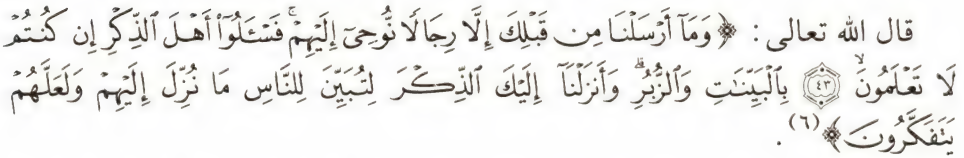 قال الله تعالى : ﴿ وَمَآ أَرْسَلْنَا مِن قَبْلِكَ إِلَّا رِجَالًا نُّوحِىٓ إِلَيْهِمْ ۚ فَسْـَٔلُوٓا۟ أَهْلَ ٱلذِّكْرِ إِن كُنتُمْ
لَا تَعْلَمُونَ ۙ ﴿٤٣﴾ بِٱلْبَيِّنَـٰتِ وَٱلزُّبُرِ ۗ وَأَنزَلْنَآ إِلَيْكَ ٱلذِّكْرَ لِتُبَيِّنَ لِلنَّاسِ مَا نُزِّلَ إِلَيْهِمْ وَلَعَلَّهُمْ
يَتَفَكَّرُونَ ﴾ (٦) .